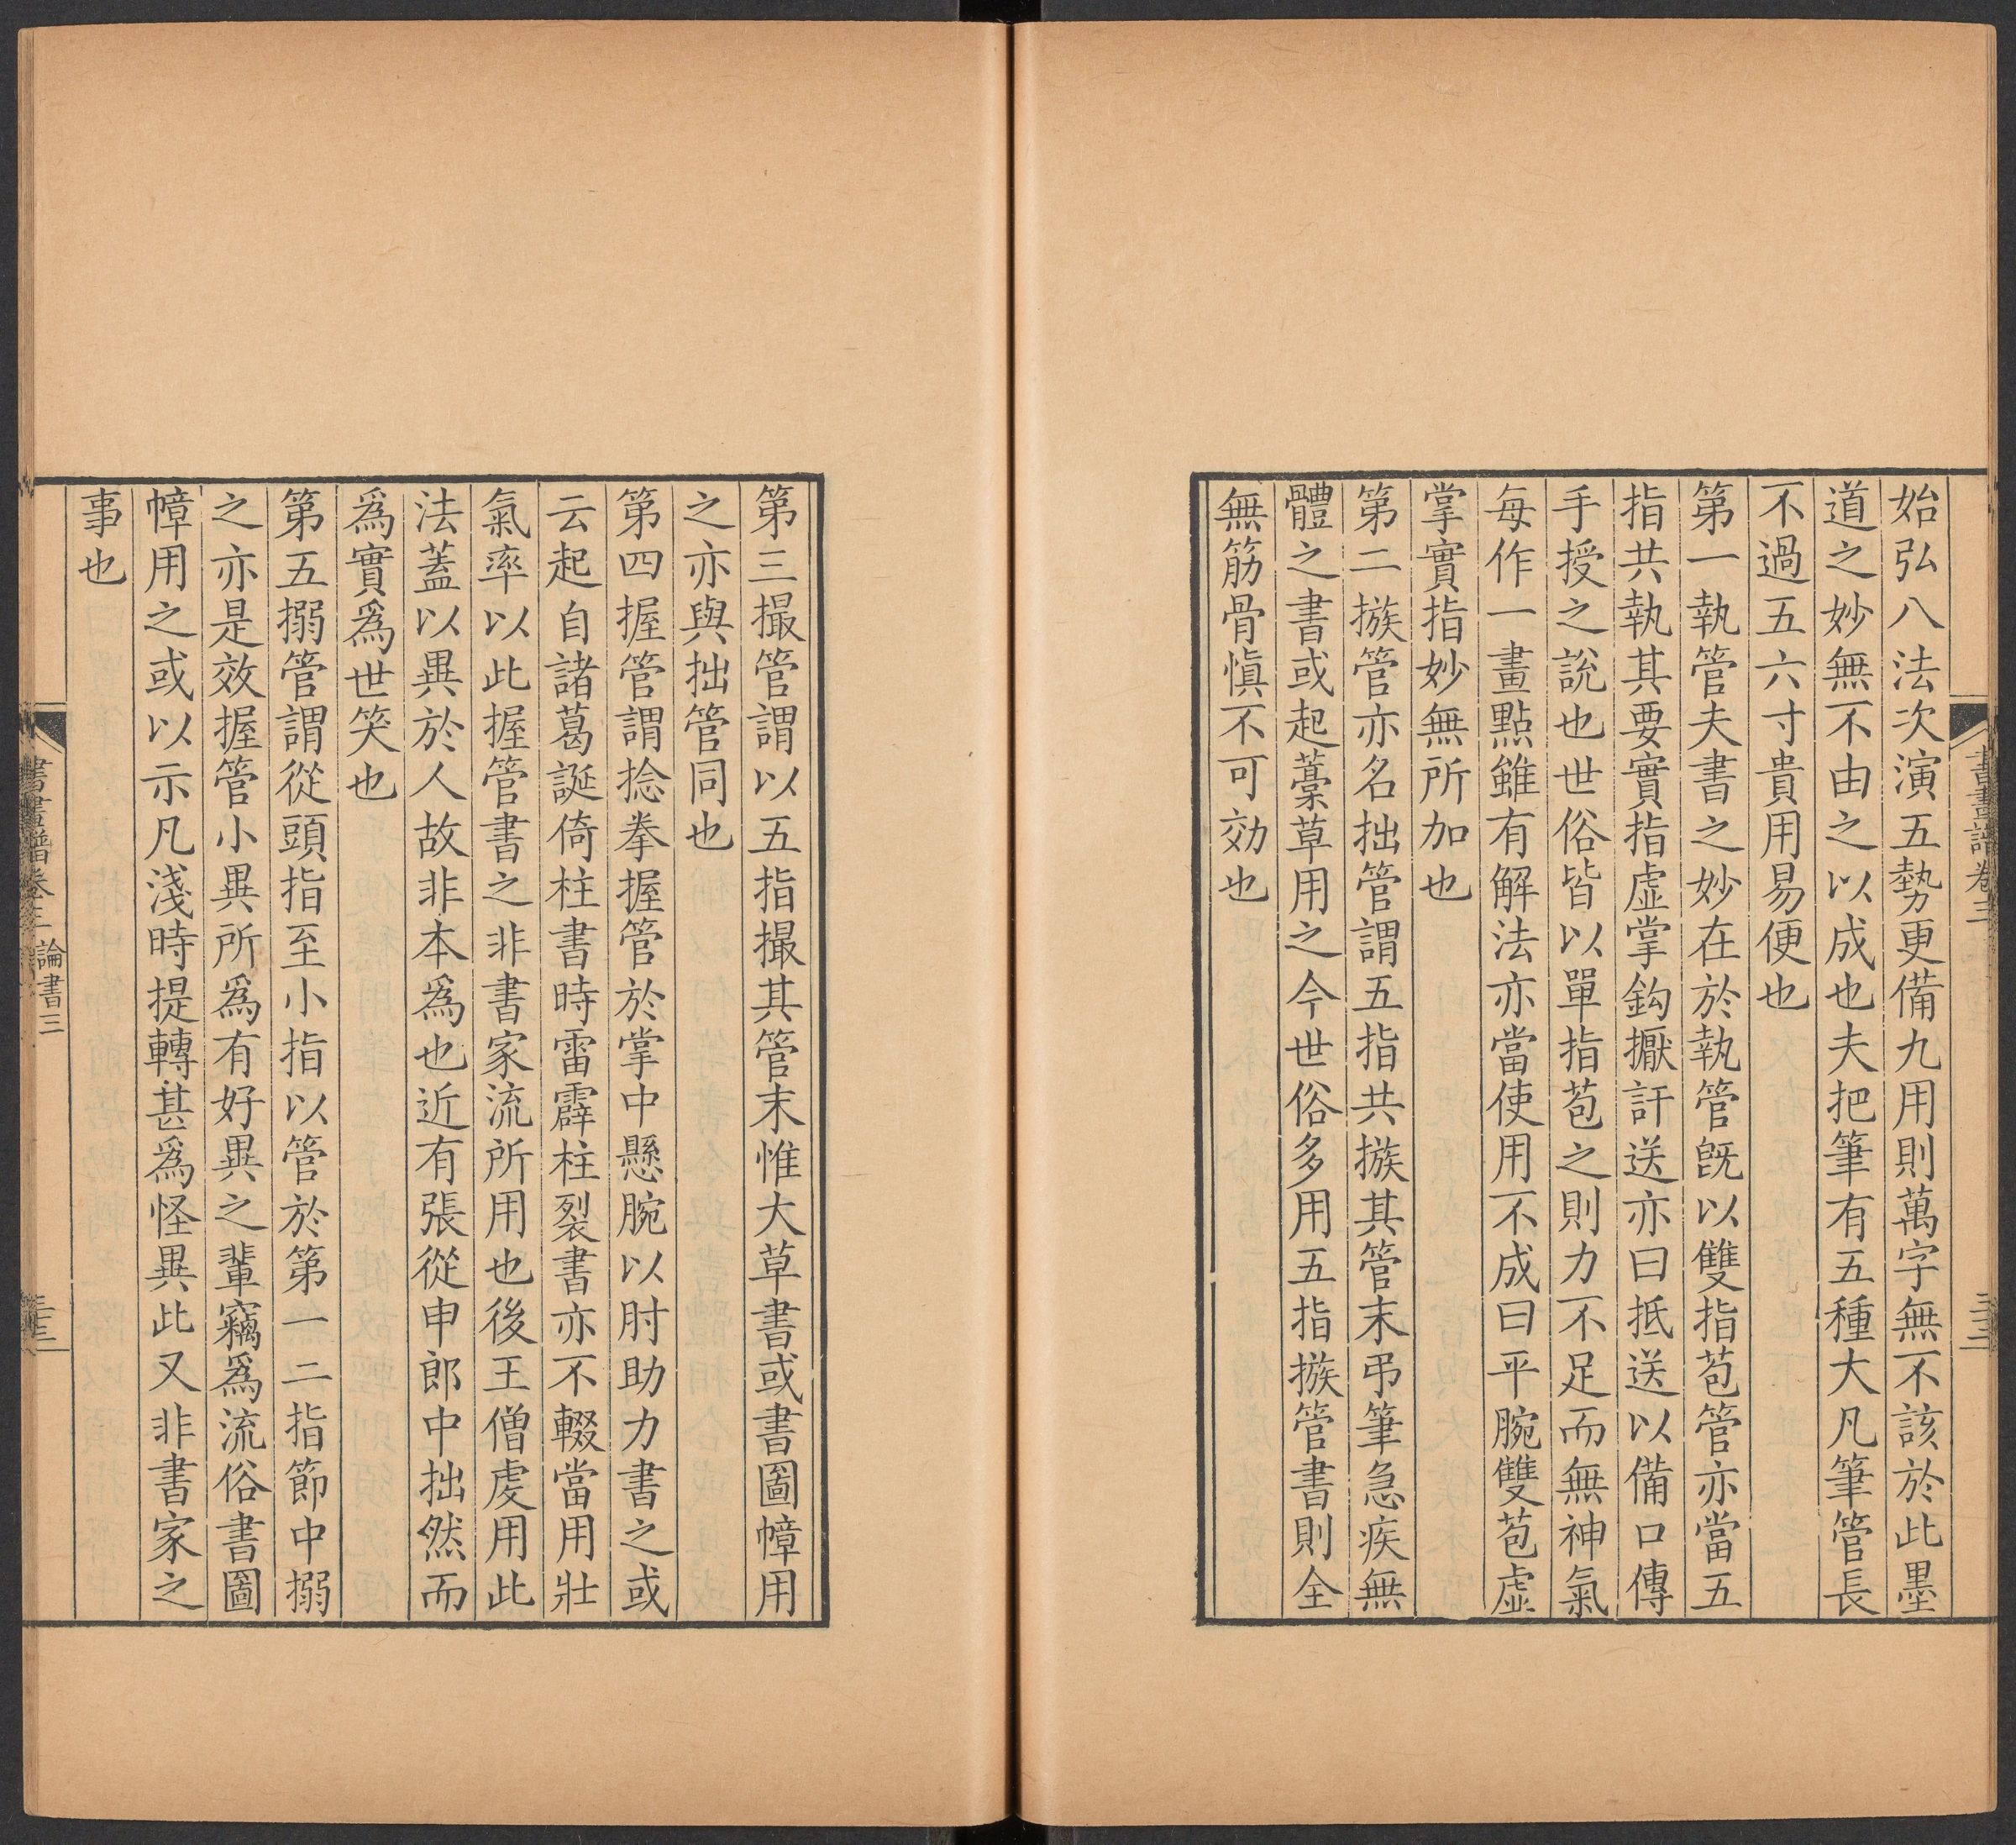 始弘八法次演五勢更備九用則萬字無不該於此墨
道之妙無不由之以成也夫把筆有五種大凡筆管長
不過五六寸貴用易便也
第一執管夫書之妙在於執管旣以雙指苞管亦當五
指共執其要實指虛掌鈎擫訐送亦曰抵送以備口傳
手授之說也世俗皆以單指苞之則力不足而無神氣
每作一畫點雖有解法亦當使用不成曰平腕雙苞虛
掌實指妙無所加也
第二搩管亦名拙管謂五指共搩其管末弔筆急疾無
體之書或起藳草用之今世俗多用五指搩管書則全
無筋骨愼不可効也
書畫譜卷三
第三撮管謂以五指撮其管末惟大草書或書圖幛用
之亦與拙管同也
第四握管謂捻拳握管於掌中懸腕以肘助力書之或
云起自諸葛誕倚柱書時雷霹柱裂書亦不輟當用壯
氣率以此握管書之非書家流所用也後王僧虔用此
法蓋以異於人故非本爲也近有張從申郎中拙然而
爲實爲世笑也
第五搦管謂從頭指至小指以管於第一二指節中搦
之亦是效握管小異所爲有好異之輩竊爲流俗書圖
幛用之或以示凡淺時提轉甚爲怪異此又非書家之
事也
書畫譜卷三 論書三